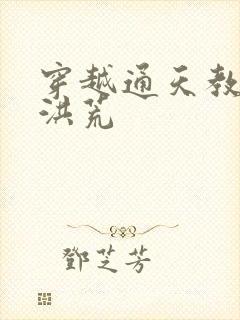 穿越通天教
洪荒
鄧芝芳